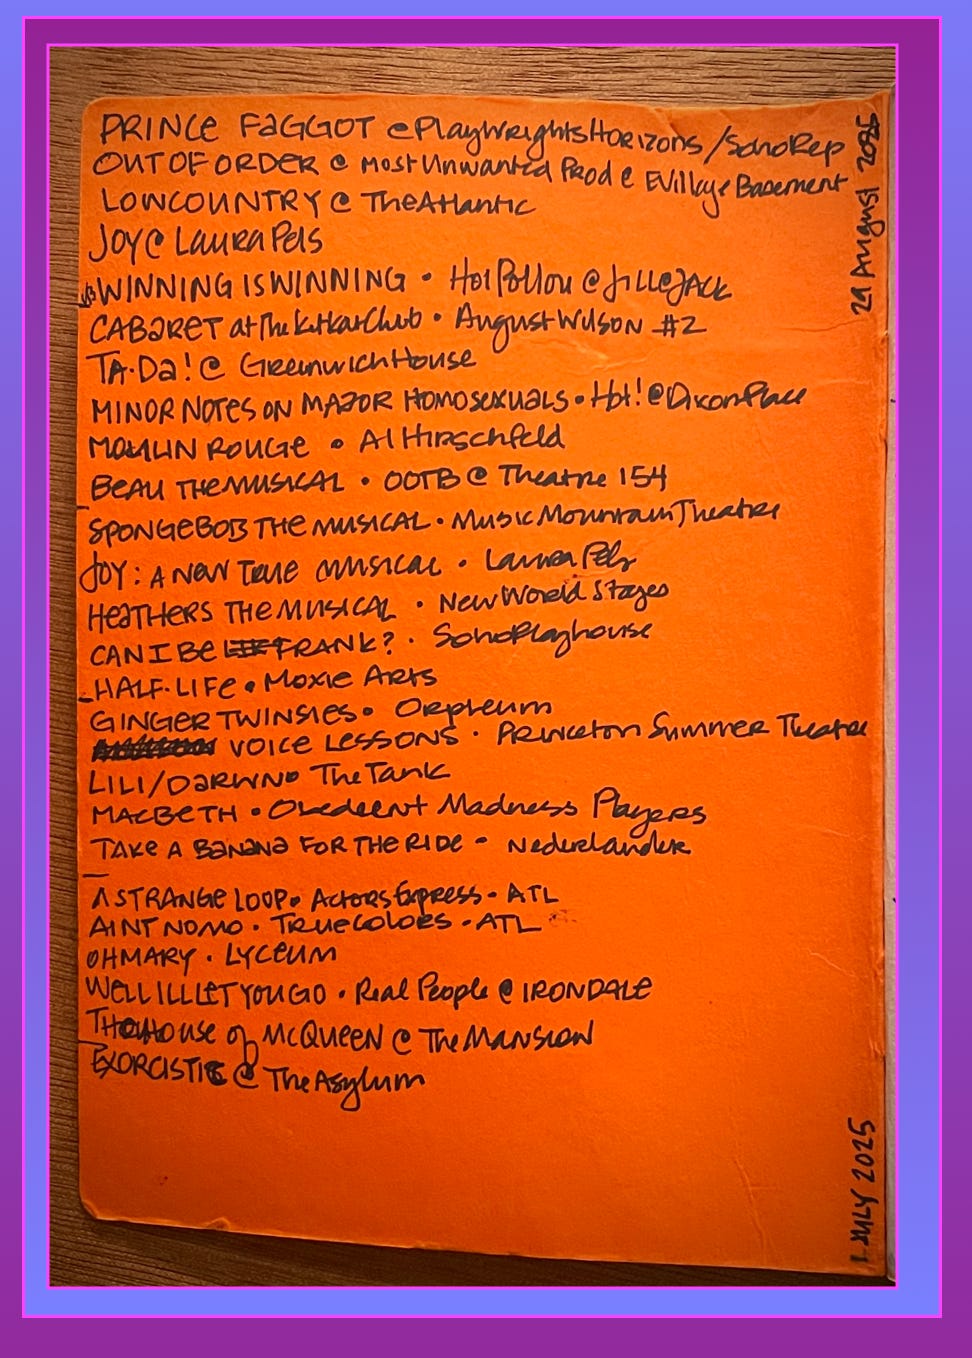 PRINCE FAGGOT @PlaywrightsHorizons/SohoRep
OUT OF ORDER @ Most Unwanted Prod @ EVillage Basement
LOWCOUNTRY @ The Atlantic
JOY @ Laura Pels
WINNING IS WINNING • Hoi Polloi @ JILL@JACK
CABARET at The Kit Kat Club • August Wilson #2
TA-DA! @ Greenwich House
MINOR NOTES ON MAJOR HOMOSEXUALS • Hot! @ Dixon Place
MOULIN ROUGE • Al Hirschfeld
BEAU THE MUSICAL • OOTB @ Theatre 154
SPONGEBOB THE MUSICAL • Music Mountain Theatre
JOY: A NEW TRUE MUSICAL • Laura Pels
HEATHERS THE MUSICAL • New World Stages
CAN I BE FRANK? • SohoPlayhouse
HALF-LIFE • Moxie Arts
GINGER TWINSIES • Orpheum
VOICE LESSONS • Princeton Summer Theatre
LILI/DARWIN • The Tank
MACBETH • Obedient Madness Players
TAKE A BANANA FOR THE RIDE • Nederlander
A STRANGE LOOP • Actors Express • ATL
AINT NO MO • TrueColors • ATL
OH MARY • LYCEUM
WELL ILL LET YOU GO • Real People @ IRONDALE
THE House of McQUEEN @ The Mansion
EXORCISTIC @ The Asylum
29 August 2025
1 JULY 2025